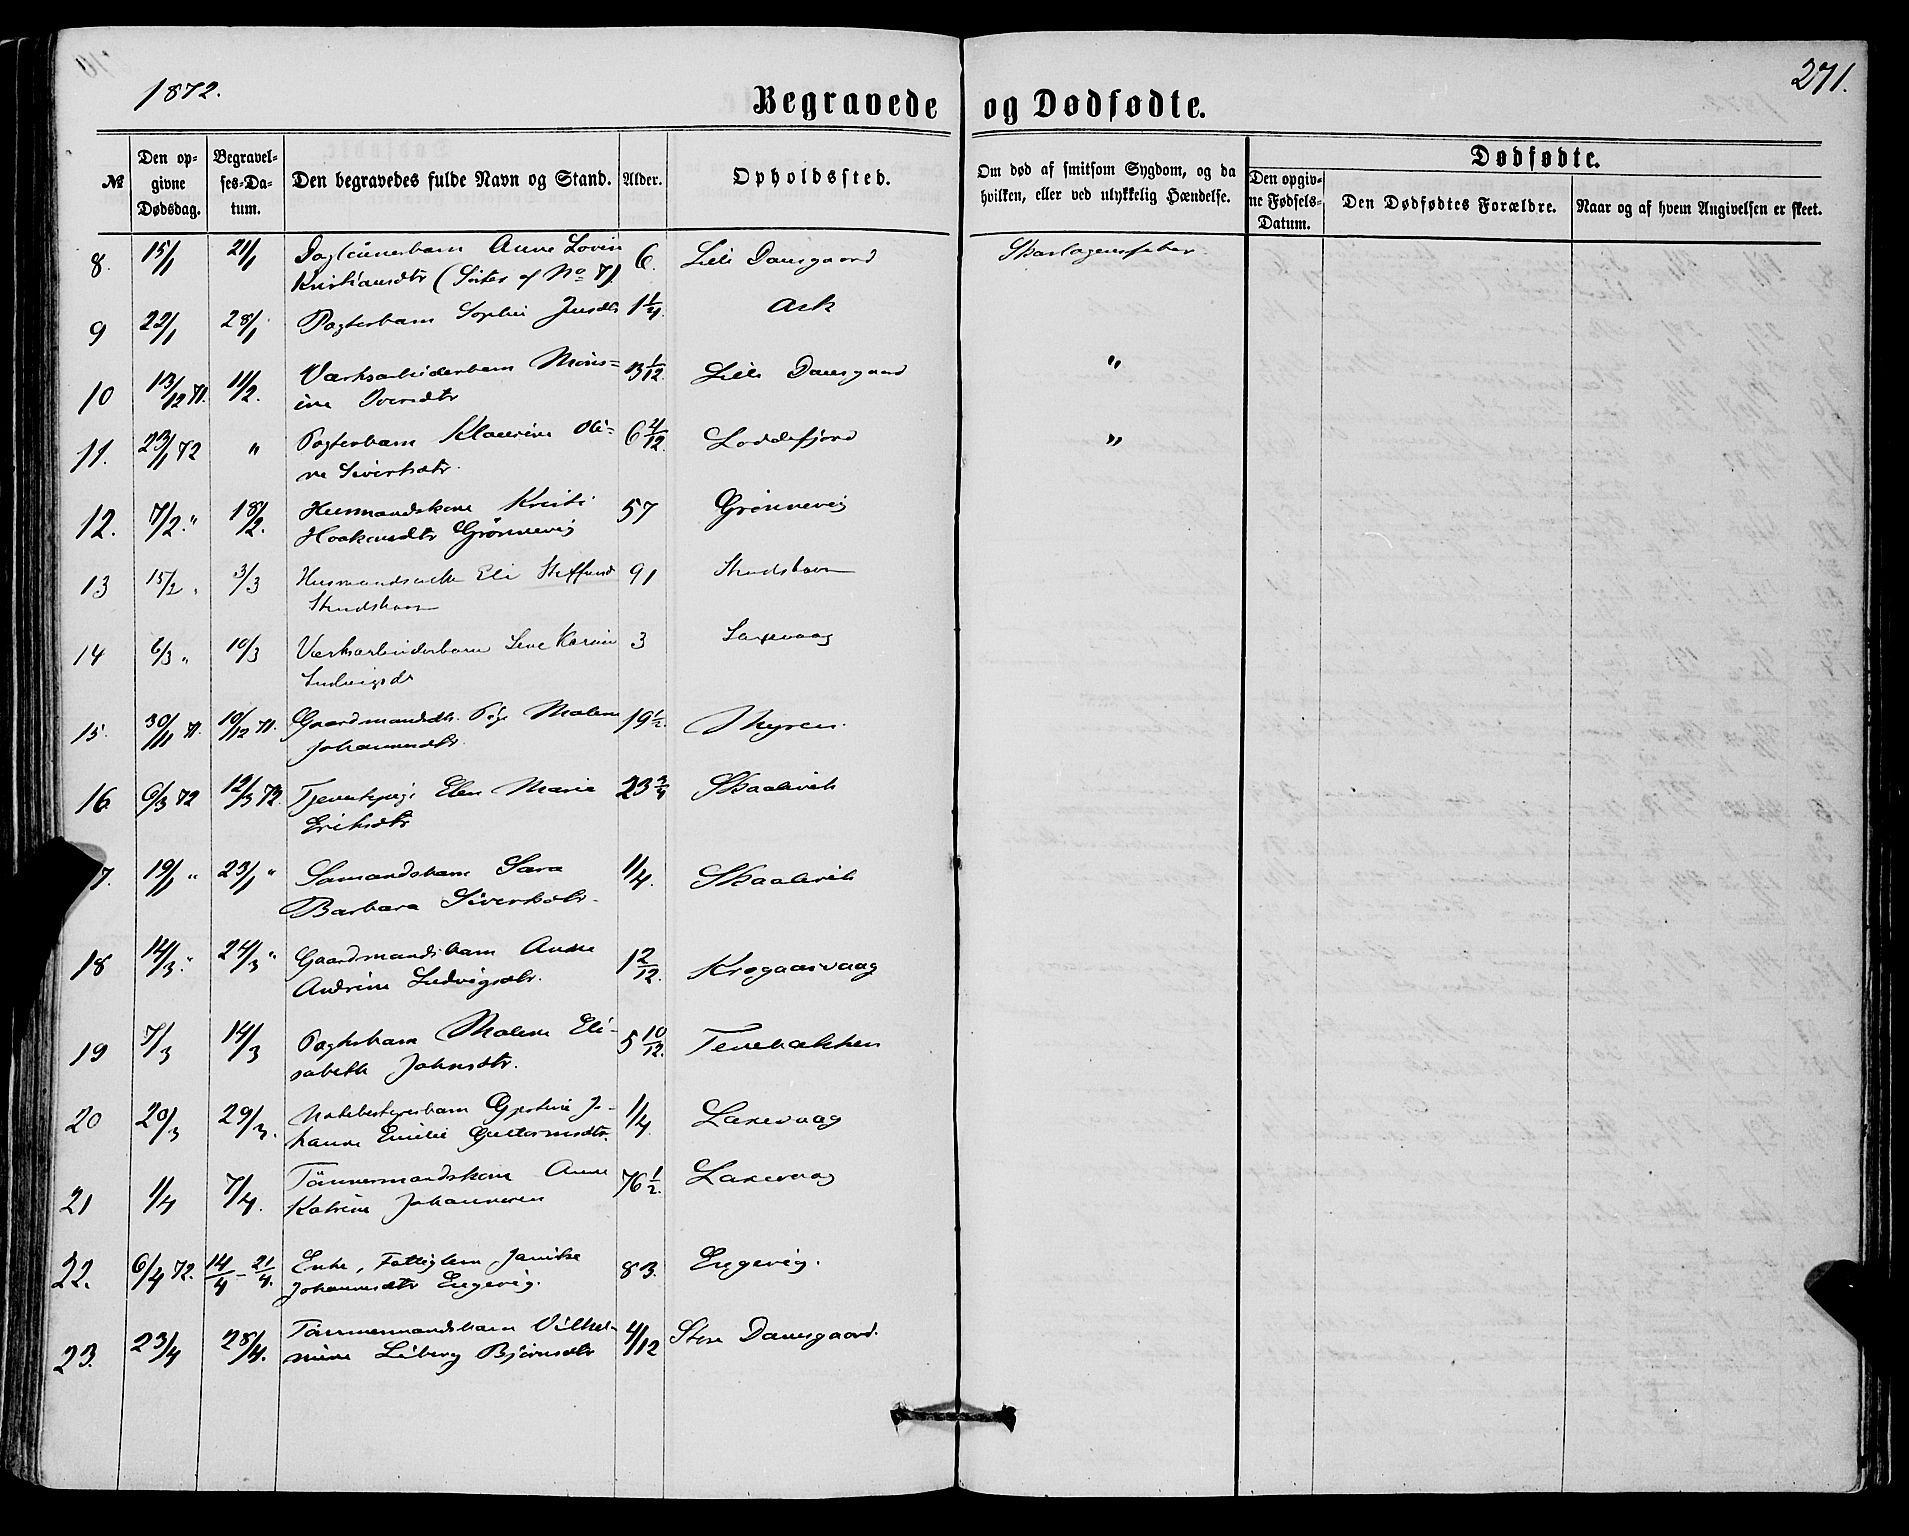 1872.
Begravede og Dødfødte.
271.
№
Den opgivne Dødsdag.
Begravelses-Datum.
Den begravedes fulde Navn og Stand.
Alder.
Opholdssted.
Om død af smitsom Sygdom, og da hvilken, eller ved ulykkelig Hændelse.
Dødfødte.
Den opgivne Fødsels-Datum.
Den Dødfødtes Forældre.
Naar og af hvem Angivelsen er skeet.
8. 15/1 21/1 Daglönnerbarn Anne Lovin 6. Lille Damsgaard Skarlagensfeber
Kristiansdtr (Søster af No 7).
9 22/1 28/1 Pagterbarn Sophie Jensdtr 1 1/4 Ask
10 13/12 71. 11/2. Værksarbeiderbarn Mons= 13 1/12. Lille Damsgaard "
ine Iversdtr
11. 23/1 72 " Pagterbarn Klaurine Oli- 6 4/12. Loddefjord "
ne Sivertsdtr.
12. 7/2. " 18/2. Husmandskone Kristi 57 Grönnevig
Haakensdtr Grönnevig
13 15/2 " 3/3 Husmandsenke Eli Steffensd 91 Skudshavn
Skudshavn
14 6/3 " 10/3 Værksarbeiderbarn Karine 3 Laxevaag
Ludvigsdr
15. 30/11 71. 10/12 71. Gaardmandsdtr. Pige Malene 19 1/2. Myren.
Johannesdtr.
16 6/3 72 12/3 72. Tjenestepige Elen Marie 23 3/4 Skaalevik
Eriksdtr
17. 19/1 " 23/1 " Sømandsbarn Sara 1/4. Skaalevik
Barbara Sivertsdtr.
18 14/3. " 24/3 " Gaardmandsbarn Anne 1 2/12. Krogaasvaag
Andrine Ludvigsdtr.
19 7/3 14/3 Pagterbarn Malene Eli- 5 10/12. Tenebakken
sabeth Johnsdtr.
20 20/3 29/3. Jo- 1/4. Laxevaag
hanne Emilie Guttormsdtr.
21 1/4 7/4. Tömmermandskone Anne 76 1/2. Laxevaag
Katrine Johannesen
22. 6/4 72. 14/4 - 21/4. Enke, Fattiglem, Janikke 83. Engevig.
Johannesdtr Engevig.
23. 23/4 28/4. Tömmermandsbarn Vilhel- 4/12 Store Damsgaard.
mine Liberg Bjørnsdtr